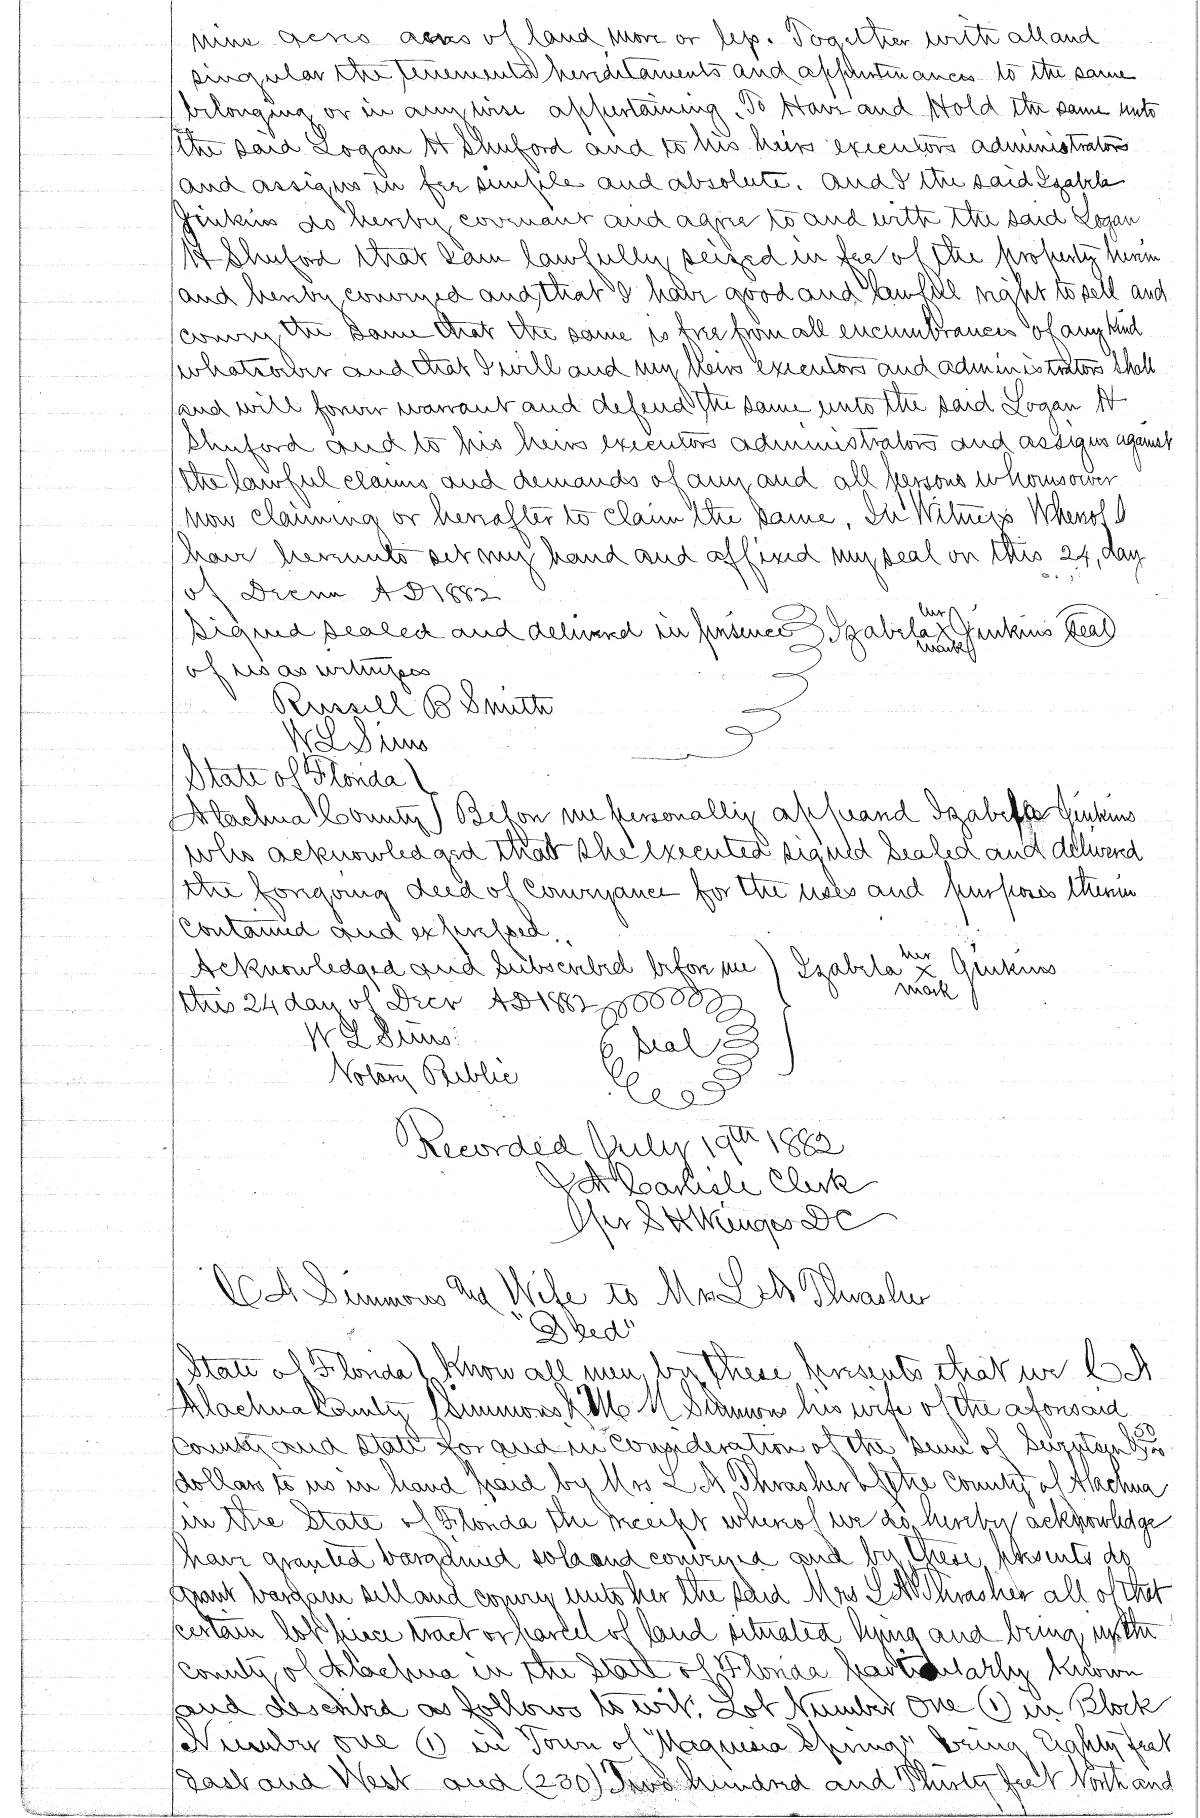 nine acres acres of land more or less. Together with all and
singular the tenements hereditaments and appurtenances to the same
belonging or in any wise appertaining. To Have and Hold the same unto
the said Logan H Shuford and to his heirs executors administrators
and assigns in fee simple and absolute. And I the said Izabela
Jinkins do hereby covenant and agree to and with the said Logan
H Shuford that I am lawfully seized in fee of the property herein
and hereby conveyed and that I have good and lawful right to sell and
convey the same that the same is free from all encumbrances of any kind
whatsoever and that I will and my heirs executors and administrators shall
and will forever warrant and defend the same unto the said Logan H
Shuford and to his heirs executors administrators and assigns against
the lawful claims and demands of any and all persons whomsoever
now claiming or hereafter to claim the same, In Witness Whereof I
have hereunto set my hand and affixed my seal on this 24, day
of Decem AD 1882
Signed sealed and delivered in presence Izabela her x mark Jinkins Seal
of us as witness
Russell B Smith
W L Sims
State of Florida
Alachua County Before me personally appeared Izabela Jinkins
who acknowledged that she executed signed Sealed and delivered
the foregoing deed of conveyance for the uses and purposes therein
contained and expressed.
Acknowledged and subscribed before me Izabela her x mark Jinkins
this 24 day of Decr AD 1882
W L Sims Seal
Notary Public
Recorded July 19th 1882
J A Carlisle Clerk
Per S H Wienges DC
C A Simmons and Wife to Mrs L A Thrasher
"Deed"
State of Florida Know all men by these presents that we C A
Alachua County Simmons & M M Simmons his wife of the aforesaid
County and State for and in consideration of the sum of Seventeen
dollars to us in hand paid by Mrs L A Thrasher of the County of Alachua
in the State of Florida the receipt whereof we do hereby acknowledge
have granted bargained sold and conveyed and by these presents do
grant bargain sell and convey unto her the said Mrs L A Thrasher all of that
certain lot piece tract or parcel of land situated lying and being in the
County of Alachua in the State of Florida particularly known
and described as follows to wit: Lot Number One (1) in Block
Number one (1) in Town of "Magnesia Spring" being Eighty feet
East and West and (230) Two hundred and Thirty feet North and